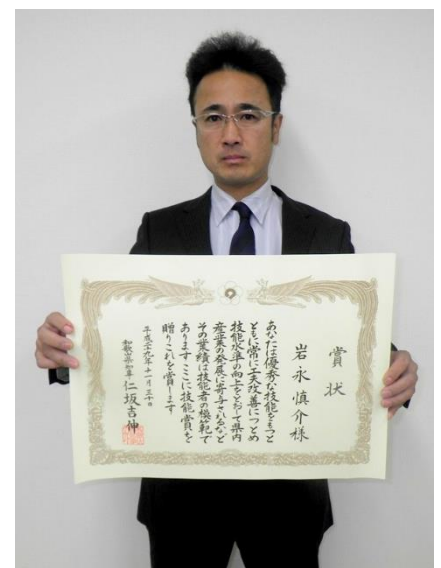 賞状
岩永慎介様
あなたは優秀な技能をもつと
ともに常に工夫改善につとめ
技能水準の向上をとおして県内
産業の発展に寄与されるなど
その業績は技能者の模範で
あります ここに技能賞を
贈りこれを賞します
平成二十九年十一月三十日
和歌山県知事 仁坂吉伸